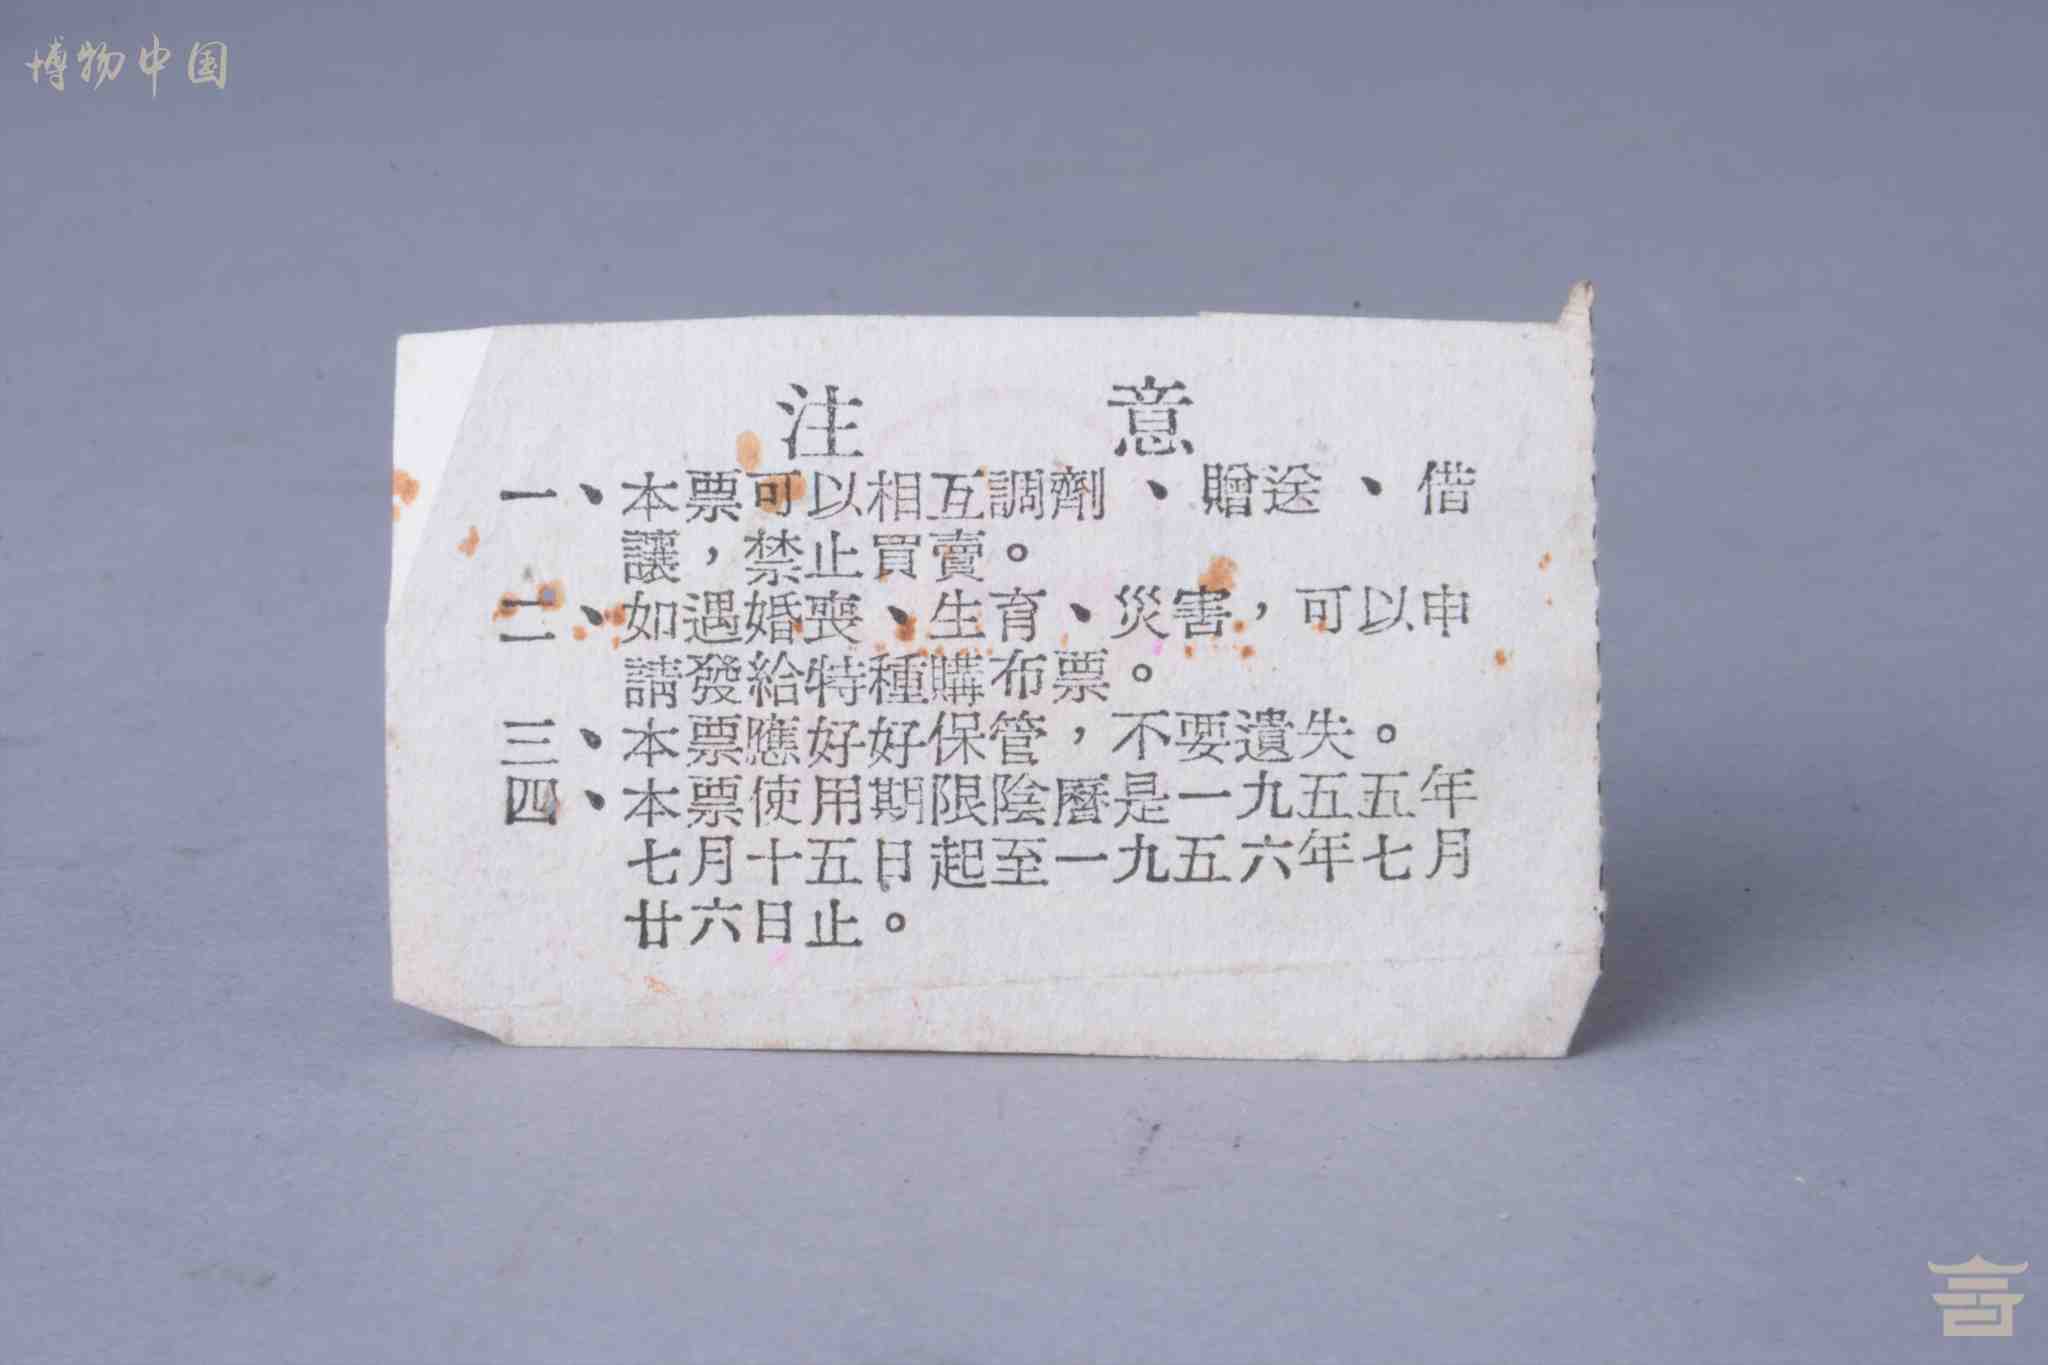 博物中国
注 意
一、本票可以相互調劑、贈送、借
讓，禁止買賣。
二、如遇婚喪、生育、災害，可以申
請發給特種購布票。
三、本票應好好保管，不要遺失。
四、本票使用期限陰曆是一九五五年
七月十五日起至一九五六年七月
廿六日止。